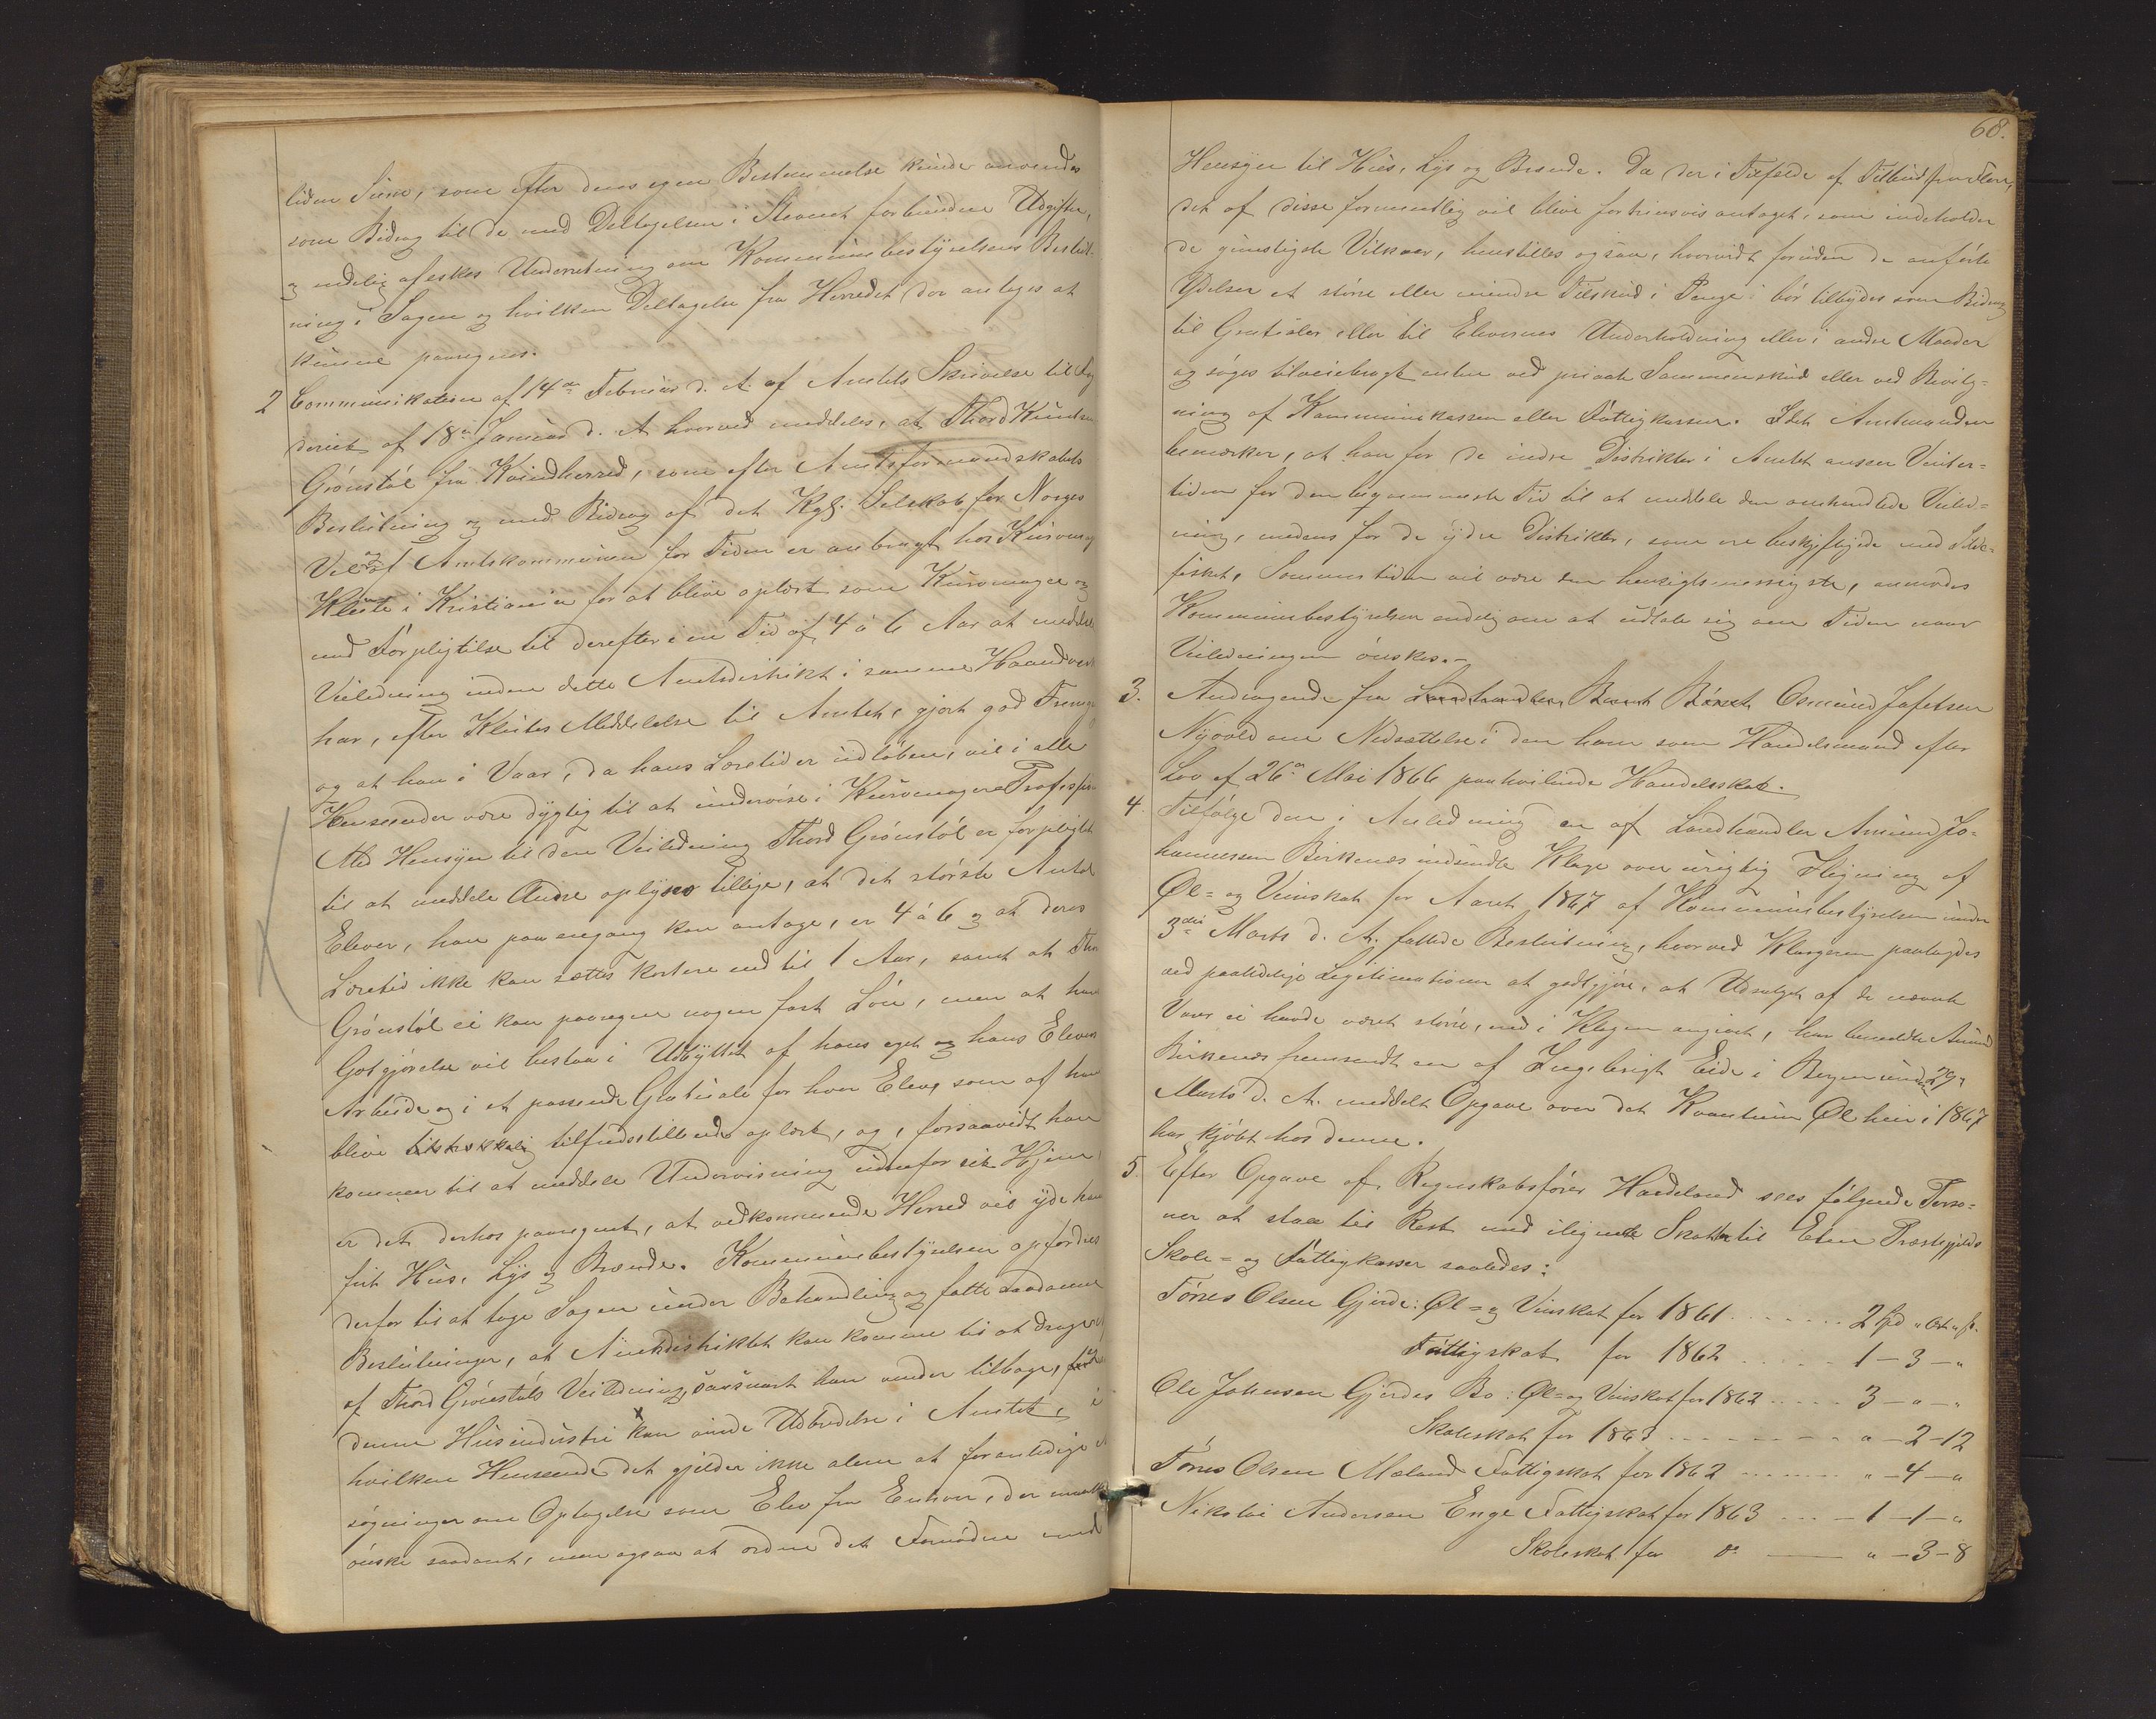 liden Sum, som efter dens egen Bestemmelse kunde anvendes
som Bidrag til de med Deltagelsen i Stevnet forbundne Udgifter,
og endelig afæskes Underretning om Kommunebestyrelsens Beslut-
ning i Sagen og hvilken Deltagelse fra Herredet der antages at
kunne paaregnes.
2 Communikation af 14de Februar d. A. af Amtets Skrivelse til Fog
deriet af 18de Januar d. A hvorved meddeles, at Thord Knudsen
Grónstól fra Kvindherred, som efter Amtsformandskabets
Beslutning og med Bidrag af det Kgl. Selskab for Norges
Vel og af Amtskommunen for Tiden er anbragt hos Kurvmager
Klüte i Kristiania for at blive oplært som Kurvmager og
med Forpligtelse til derefter i en Tid af 4 à 6 Aar at meddele
Veiledning inden dette Amtsdistrikt i samme Haandverk
har, efter Klütes Meddelelse til Amtet, gjort god Fremgang
og at han i Vaar, da hans Læretid er udløben, vil i alle
Henseender være dygtig til at undervise i Kurvmager Profession
Med Hensyn til den Veiledning Thord Grónstól er forpligtet
til at meddele Andre oplyses tillige, at det største Antal
Elever, han paa engang kan antage, er 4 à 6 og at deres
Læretid ikke kan sættes kortere end til 1 Aar, samt at Thord
Grónstól ei kan paaregne nogen fast Lón, men at hans
Godtgjórelse vil bestaa i Udbyttet af hans eget og hans Elevers
Arbeide og i et passende Gratiale for hver Elev, som af ham
blive tilstrækkelig tilfredsstillende oplært, og, forsaavidt han
kommer til at meddele Undervisning udenfor sit Hjem,
er det derhos paaregnet, at vedkommende Herred vil yde ham
frit Huus, Lys og Brænde. Kommunebestyrelsen opfordres
derfor til at tage Sagen under Behandling og fatte saadanne
Beslutninger, at Amtsdistriktet kan komme til at drage
af Thord Grónstóls Veiledning, saasnart han vender tilbage,
denne Huusindustri kan vinde Udbredelse i Amtet, i
hvilken Henseende det gjelder ikke alene at foranledige
søgninger om Optagelse som Elev fra Enhver, der maatte
ónske saadant, men ogsaa at ordne det Fornødne med
68.
Hensyn til Huus, Lys og Brænde. Da der i Tilfælde af Tilbud fra Flere,
det af disse formentlig vil blive fortrinsvis antaget, som indeholder
de gunstigste Vilkaar, henstilles ogsaa, hvorvidt foruden de anfórte
Ydelser et større eller mindre Tilskud i Penge bór tilbydes som Bidrag
til Gratialer eller til Elevernes Underholdning eller i andre Maader
og søges tilveiebragt enten ved private Sammenskud eller ved Bevilg-
ning af Kommunekassen eller Fattigkassen. Idet Amtmanden
bemærker, at han for de indre Distrikter i Amtet anser Vinter-
tiden for den beqvemmeste Tid til at meddele den omhandlede Veiled-
ning, medens for de ydre Distrikter, som ere beskjeftigede med Silde-
fisket, Sommertiden vil være den hensigtsmæssigste, anmodes
Kommunebestyrelsen endelig om at udtale sig om Tiden naar
Veiledningen ónskes.-
3. Andragende fra Landhandler Berent Bórset Osmund Jafetsen
Nyvold om Nedsættelse i den ham som Handelsmand efter
Lov af 26de Mai 1866 paahvilende Handelsskat.
4. Tilfólge den i Anledning en af Landhandler Amund Jo-
hannessen Birkenæs indsendte Klage over urigtig Ilignig af
Øl= og Vinskat for Aaret 1867 af Kommunebestyrelsen under
3die Marts d. A. fattede Beslutning, hvorved Klageren paalagdes
ved paalidelige Legitimationer at godtgjóre, at Udsalget af de nævnte
Varer ei havde været størrre, end i Klagen angivet, har bemeldte Amund
Birkenæs fremsendt en af Ingebrigt Eide i Bergen under 29de
Marts d. A. meddelt Opgave over det Kvantum Øl han i 1867
har kjóbt hos denne.
5. Efter Opgave af Regnskabsfórer Hardeland sees fólgende Perso-
ner at staae til Rest med ilignede Skatter til Etne Præstegjelds
Skole= og Fattigkasser saaledes:
Tónes Olsen Gjerde: Øl= og Vinskat for 1861 ....... 2 Spd „ Ort „ ß.
Fattigskat for 1862 ..... 1 — 3 — „
Ole Johnsen Gjerdes Bo: Øl= og Vinskat for 1862 ..... 3 — „ — „
Skoleskat for 1863 ........ „ — 2 — 12
Tónes Olsen Mæland Fattigskat for 1862 ....... „ — 4 — „
Nikolai Andersen Enge Fattigskat for 1863 ... — 1 — 1 — „
Skoleskat for do —— „ — 3 — 8